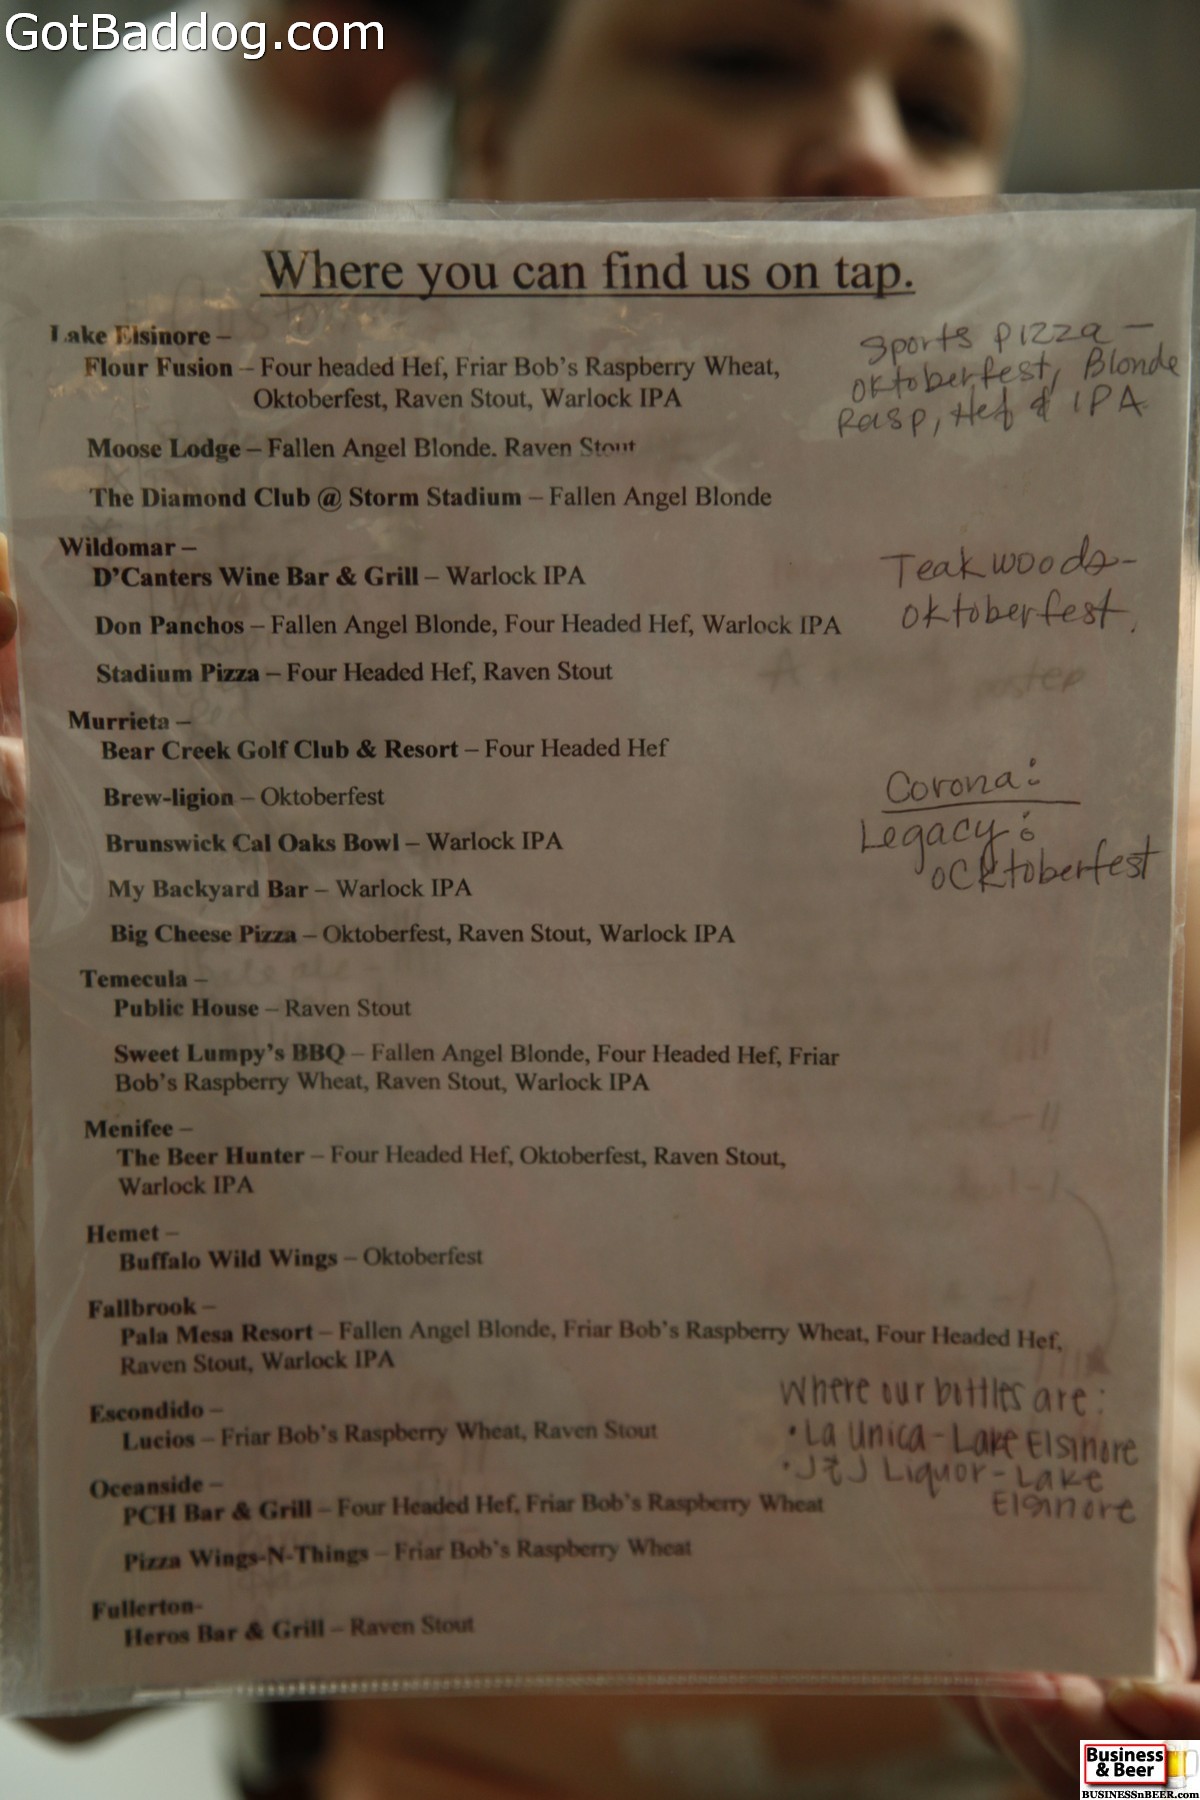 GotBaddog.com
Where you can find us on tap.
Lake Elsinore –
Flour Fusion – Four headed Hef, Friar Bob's Raspberry Wheat,
Oktoberfest, Raven Stout, Warlock IPA
Sports Pizza –
Oktoberfest, Blonde
Rasp, Hef & IPA
Moose Lodge – Fallen Angel Blonde. Raven Stout
The Diamond Club @ Storm Stadium – Fallen Angel Blonde
Wildomar –
D'Canters Wine Bar & Grill – Warlock IPA
Don Panchos – Fallen Angel Blonde, Four Headed Hef, Warlock IPA
Stadium Pizza – Four Headed Hef, Raven Stout
Teakwoods –
Oktoberfest.
Murrieta –
Bear Creek Golf Club & Resort – Four Headed Hef
Brew-ligion – Oktoberfest
Brunswick Cal Oaks Bowl – Warlock IPA
My Backyard Bar – Warlock IPA
Big Cheese Pizza – Oktoberfest, Raven Stout, Warlock IPA
Corona:
Legacy:
Ocktoberfest
Temecula –
Public House – Raven Stout
Sweet Lumpy's BBQ – Fallen Angel Blonde, Four Headed Hef, Friar
Bob's Raspberry Wheat, Raven Stout, Warlock IPA
Menifee –
The Beer Hunter – Four Headed Hef, Oktoberfest, Raven Stout,
Warlock IPA
Hemet –
Buffalo Wild Wings – Oktoberfest
Fallbrook –
Pala Mesa Resort – Fallen Angel Blonde, Friar Bob's Raspberry Wheat, Four Headed Hef,
Raven Stout, Warlock IPA
Escondido –
Lucios – Friar Bob's Raspberry Wheat, Raven Stout
Oceanside –
PCH Bar & Grill – Four Headed Hef, Friar Bob's Raspberry Wheat
Pizza Wings-N-Things – Friar Bob's Raspberry Wheat
Fullerton-
Heros Bar & Grill – Raven Stout
Where our bottles are:
• La Unica – Lake Elsinore
• J & J Liquor – Lake
Elsinore
Business
& Beer
BUSINESSnBEER.com